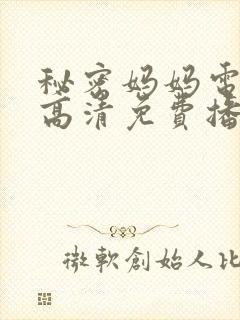 秘密妈妈电
高清免費播
微軟創始人比